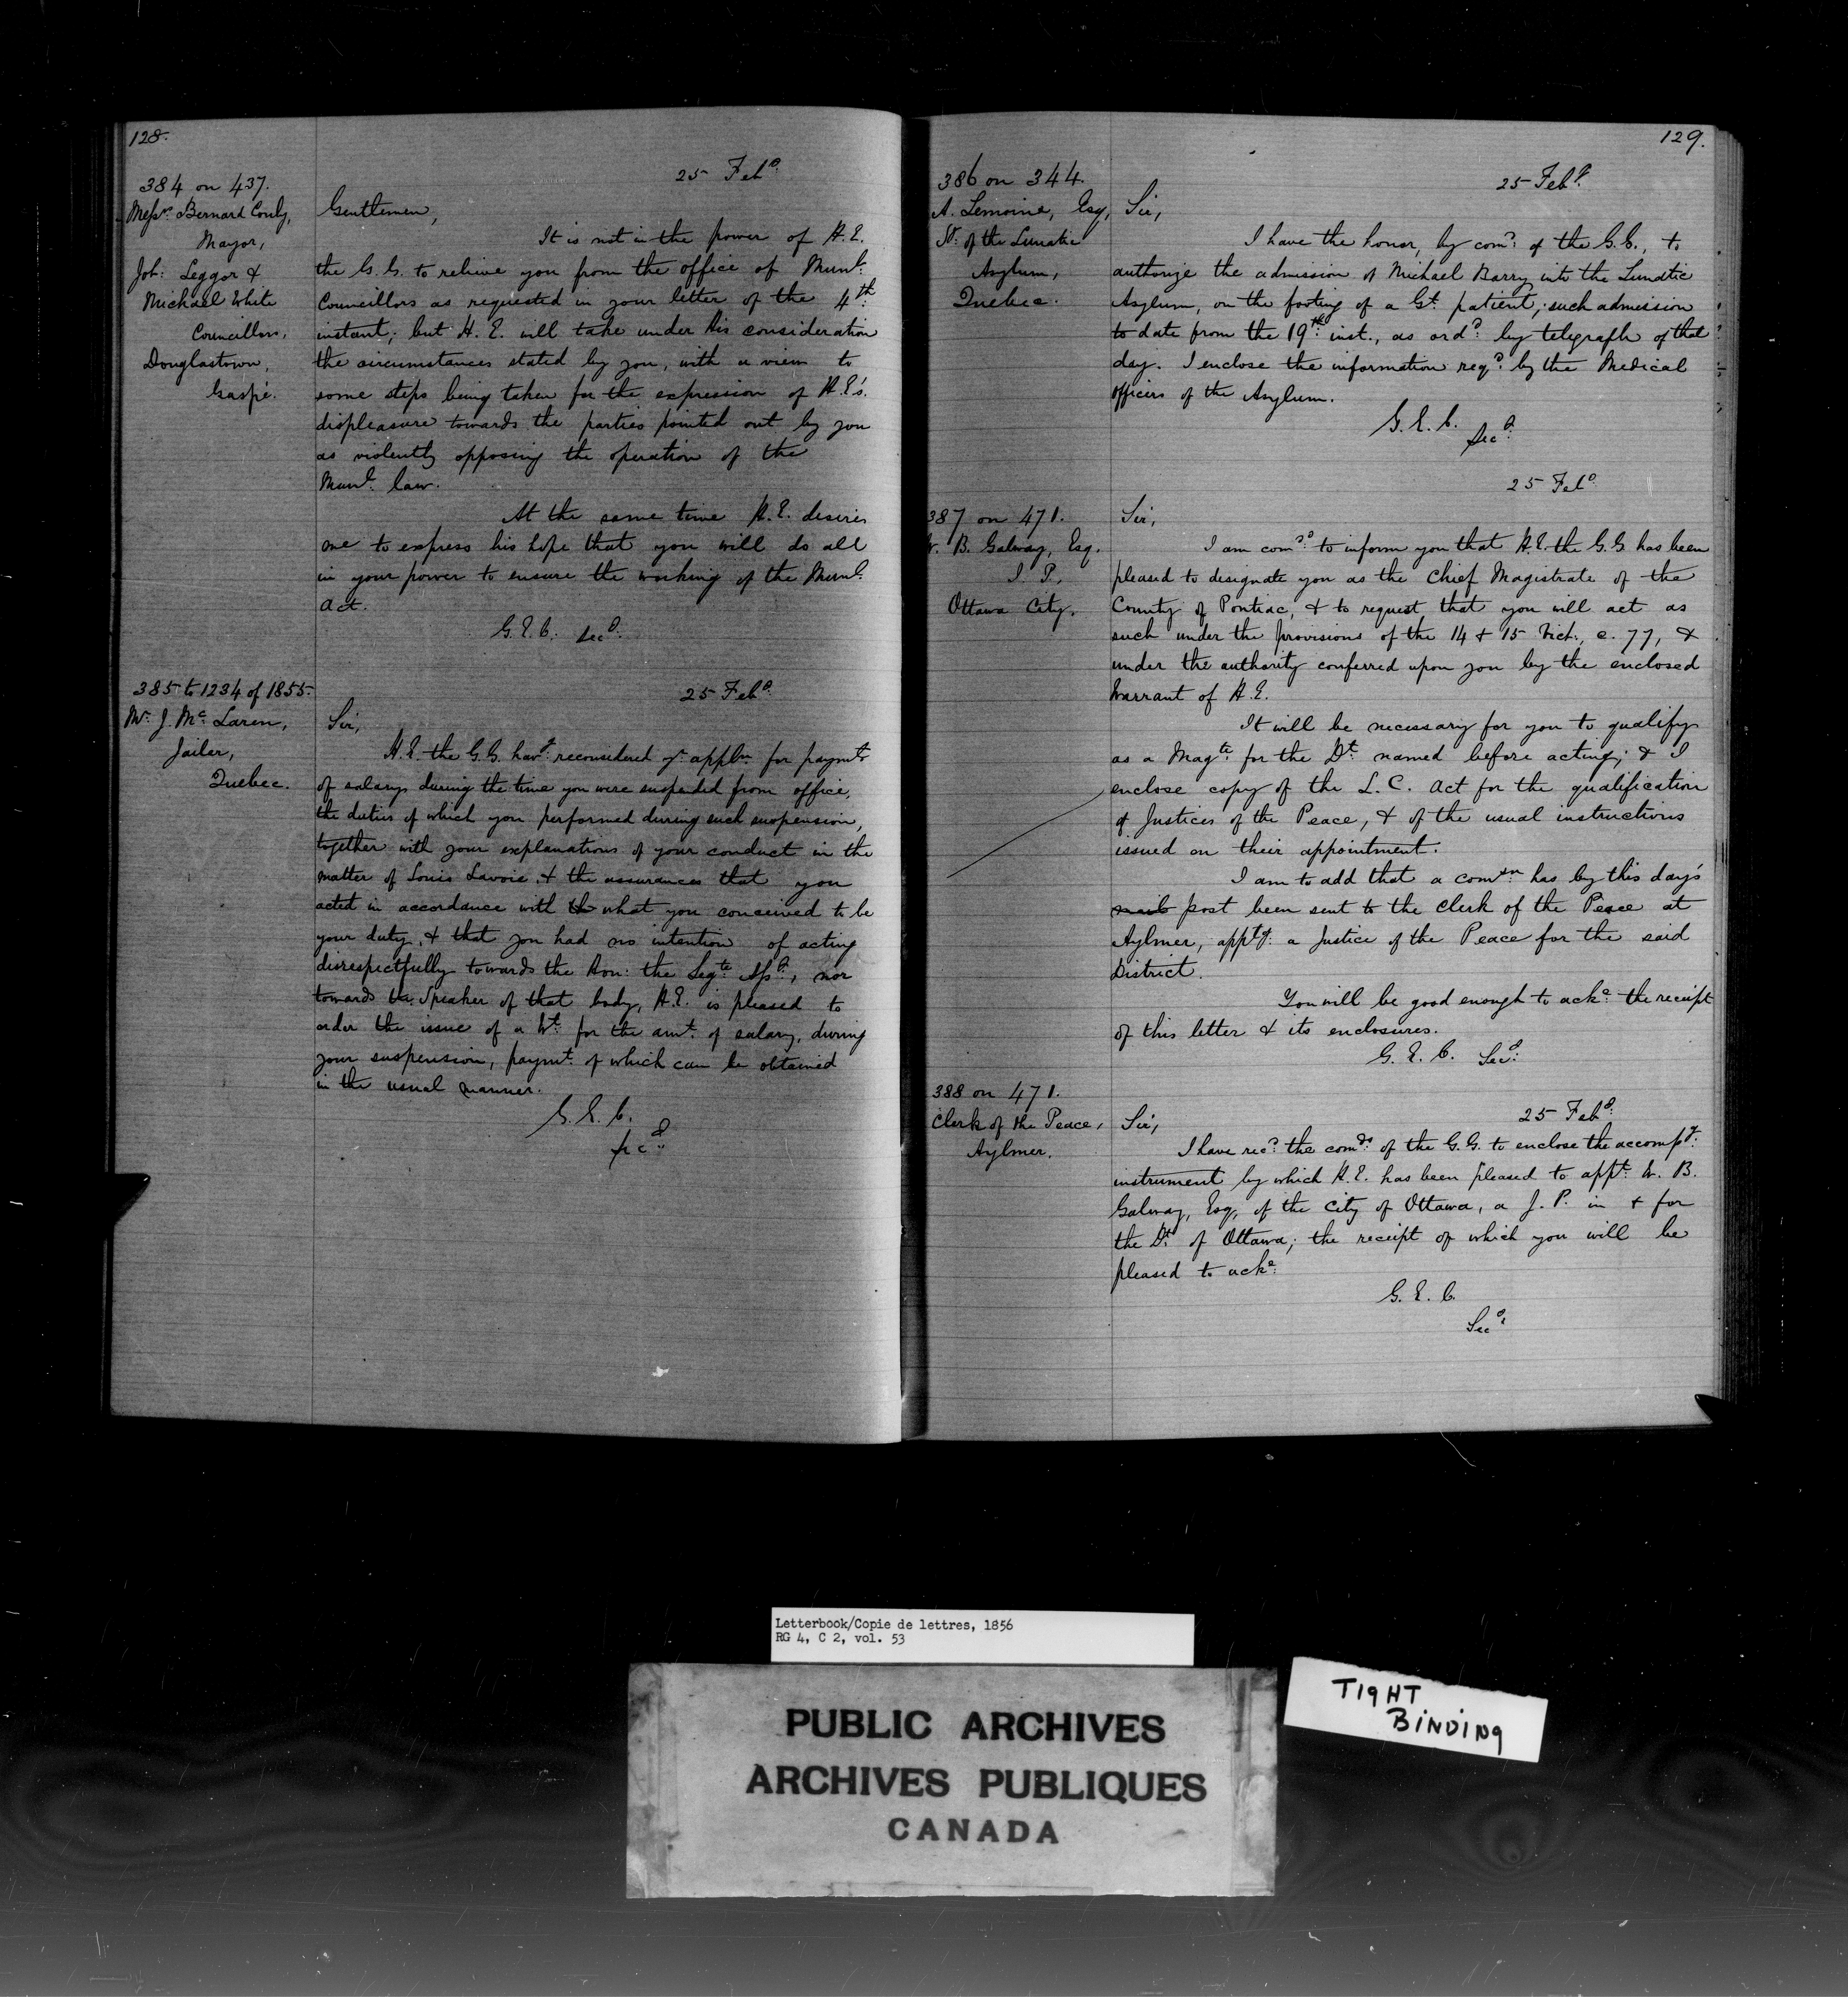 128.
25 Feby.
384 on 437.
Messrs. Bernard Conly,
Mayor,
Job: Leggor &
Michael White
Councillors,
Douglastown,
Gaspé.
Gentlemen,
It is not in the power of H.E.
the G.G. to relieve you from the office of Munl.
Councillors as requested in your letter of the 4th
instant; but H.E. will take under his consideration
the circumstances stated by you, with a view to
some steps being taken for the expression of H.E's.
displeasure towards the parties pointed out by you
as violently opposing the operation of the
Munl. law.
At the same time H.E. desires
me to express his hope that you will do all
in your power to ensure the working of the Munl.
Act.
G.E.C. Secy.
385 to 1234 of 1855.
Mr. J. Mc.Laren,
Jailer,
Quebec.
25 Feby.
Sir,
H.E. the G.G. havg. reconsidered yr. appln. for paymt.
of salary during the time you were suspended from office,
the duties of which you performed during such suspension,
together with your explanations of your conduct in the
matter of Louis Lavoie, & the assurances that you
acted in accordance with what you conceived to be
your duty, & that you had no intention of acting
disrespectfully towards the Hon: the Legte. Assy., nor
towards the Speaker of that body, H.E. is pleased to
order the issue of a Wt. for the amt. of salary, during
your suspension, paymt. of which can be obtained
in the usual manner.
G.E.C.
Secy.
129.
386 on 344.
A. Lemoine, Esq,
St. of the Lunatic
Asylum,
Quebec.
25 Feby.
Sir,
I have the honor, by comd. of the G.G., to
authorize the admission of Michael Barry into the Lunatic
Asylum, on the footing of a Gt. patient; such admission
to date from the 19th. inst., as ordd. by telegraph of that
day. I enclose the information reqd. by the Medical
officers of the Asylum.
G.E.C.
Secy.
25 Feby.
387 on 471.
W. B. Galway, Esq.
J. P.,
Ottawa City.
Sir,
I am comdd. to inform you that H.E. the G.G. has been
pleased to designate you as the Chief Magistrate of the
County of Pontiac, & to request that you will act as
such under the provisions of the 14 & 15 Vict., c. 77, &
under the authority conferred upon you by the enclosed
Warrant of H.E.
It will be necessary for you to qualify
as a Magte. for the Dt. named before acting; & I
enclose copy of the L.C. Act for the qualification
of Justices of the Peace, & of the usual instructions
issued on their appointment.
I am to add that a comsn. has by this day's
mail post been sent to the Clerk of the Peace at
Aylmer, apptg. a Justice of the Peace for the said
District.
You will be good enough to acke. the receipt
of this letter & its enclosures.
G.E.C. Secy.
388 on 471.
Clerk of the Peace,
Aylmer.
25 Feby.
Sir,
I have recd. the comds. of the G.G. to enclose the accompg.
instrument by which H.E. has been pleased to appt. W. B.
Galway, Esq, of the City of Ottawa, a J.P. in & for
the Dt. of Ottawa; the receipt of which you will be
pleased to acke.
G.E.C.
Secy.
Letterbook/Copie de lettres, 1856
RG 4, C 2, vol. 53
PUBLIC ARCHIVES
ARCHIVES PUBLIQUES
CANADA
TIGHT
BINDING